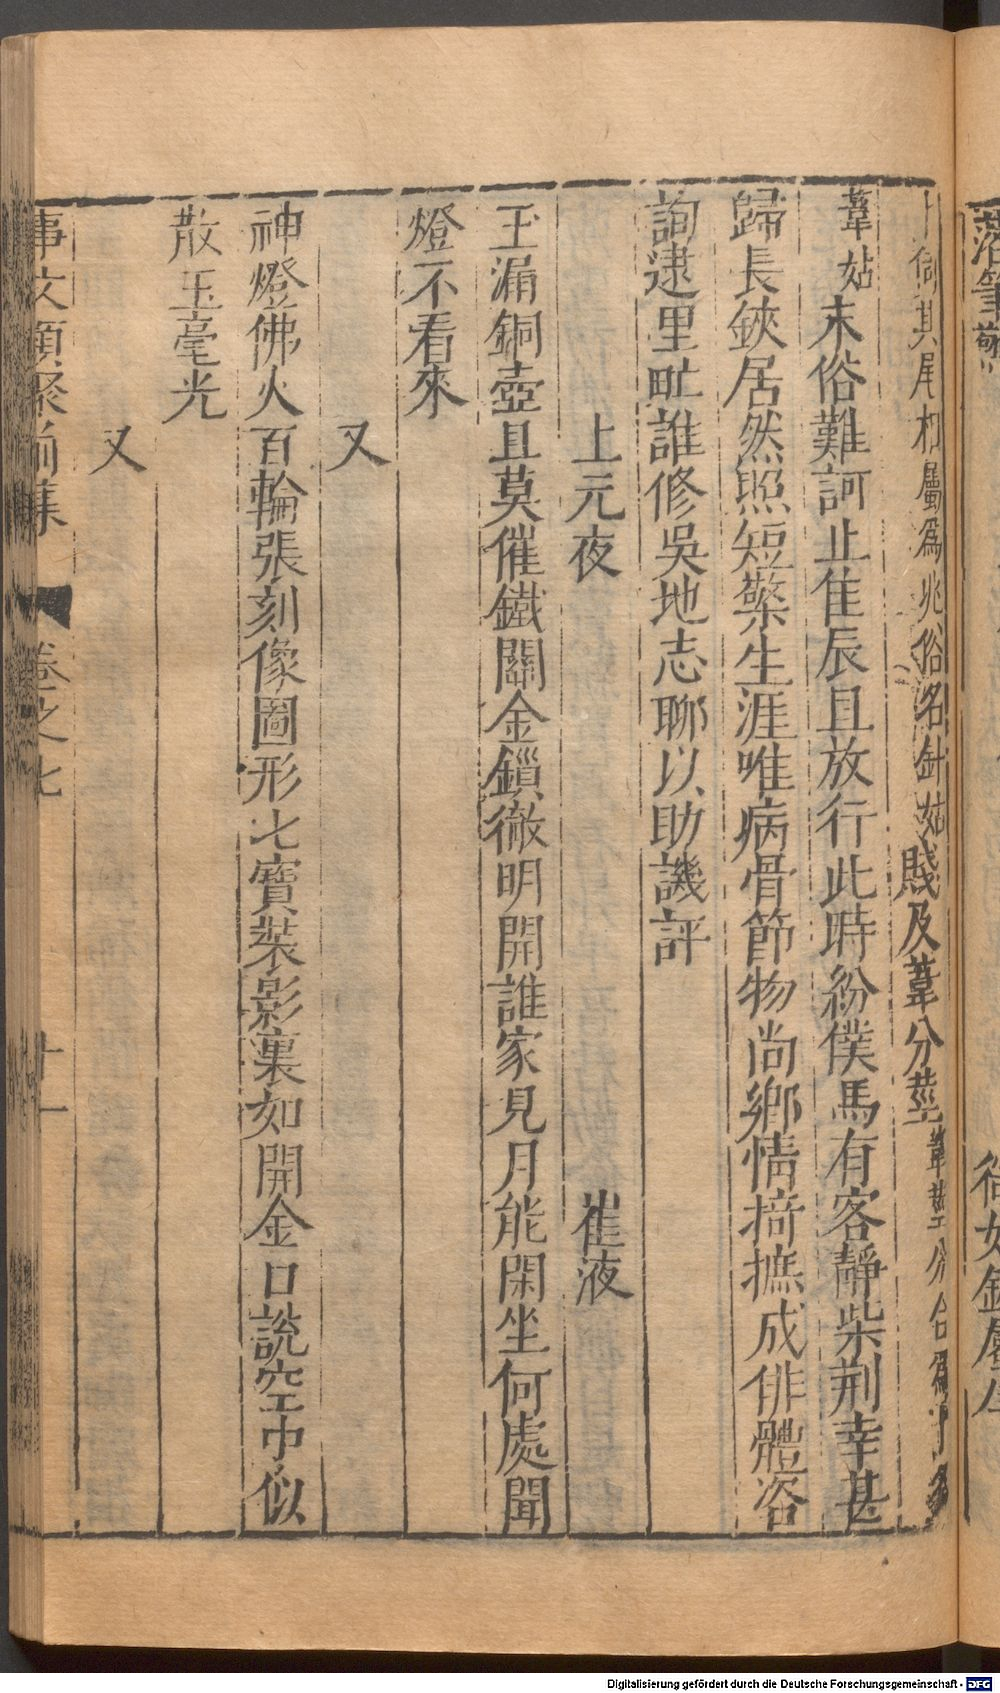 落筆
以針姑卜
伺其尾相屬爲兆俗名針姑賤及葦分莖葦莖分合爲卜名
葦姑末俗難訶止隹辰且放行此時紛僕馬有客靜柴荆幸甚
歸長鋏居然照短檠生涯唯病骨節物尚鄉情掎摭成俳體咨
詢逮里甿誰修吳地志聊以助譏評
上元夜 崔液
玉漏銅壺且莫催鐵關金鎖徹明開誰家見月能閑坐何處聞
燈不看來
又
神燈佛火百輪張刻像圖形七寶裝影裏如開金口說空中似
散玉毫光
又
事文類聚前集 卷之七 十一
Digitalisierung gefördert durch die Deutsche Forschungsgemeinschaft - DFG